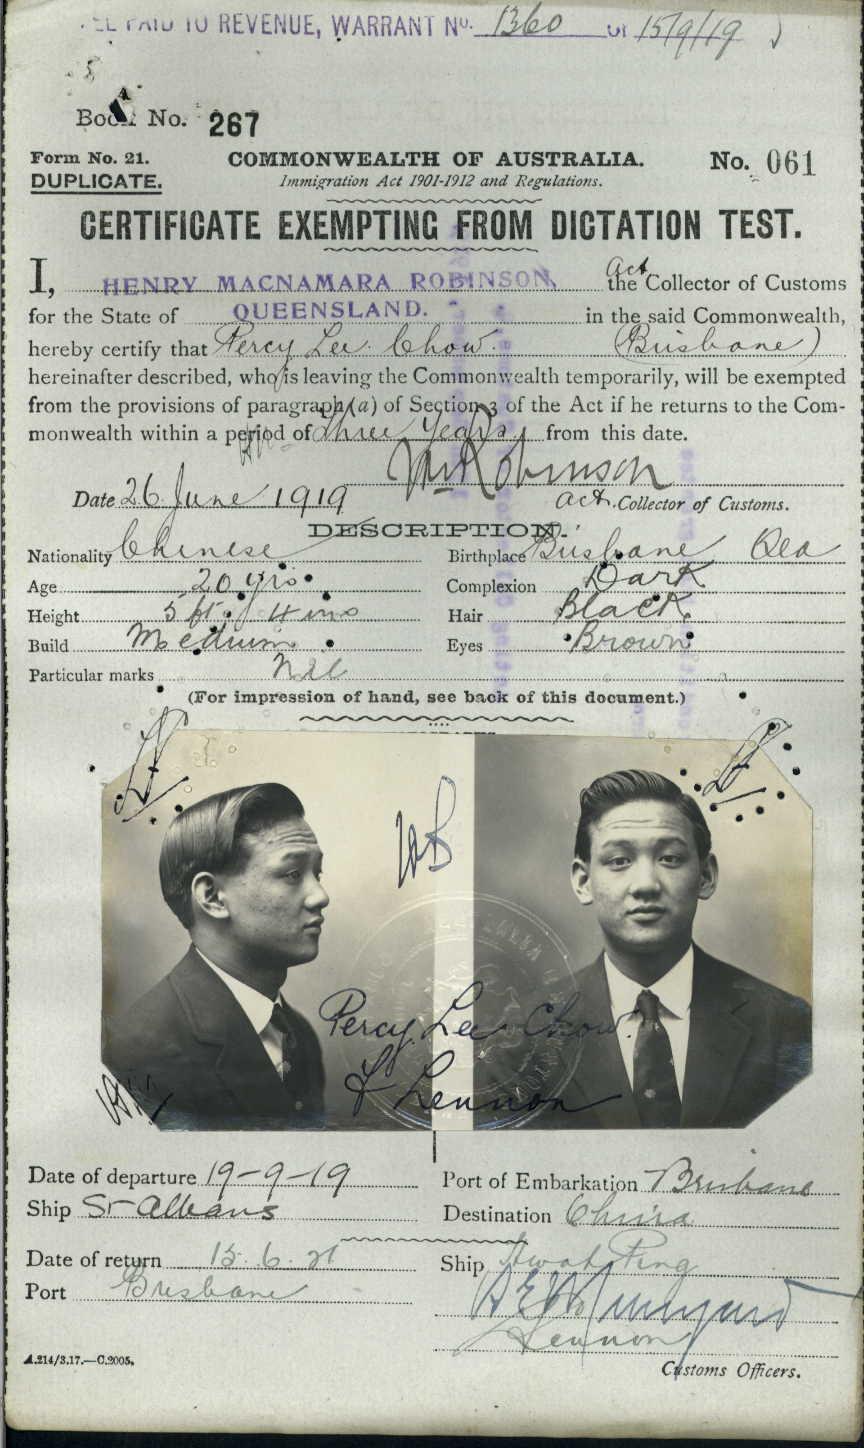 FEE PAID TO REVENUE, WARRANT No. 1360 OF 15/9/19
Book No. 267
A
Form No. 21. COMMONWEALTH OF AUSTRALIA. No. 061
DUPLICATE. Immigration Act 1901-1912 and Regulations.
CERTIFICATE EXEMPTING FROM DICTATION TEST.
I, HENRY MACNAMARA ROBINSON, the Act Collector of Customs
for the State of QUEENSLAND. in the said Commonwealth,
hereby certify that Percy Lee Chow. (Brisbane)
hereinafter described, who is leaving the Commonwealth temporarily, will be exempted
from the provisions of paragraph (a) of Section 3 of the Act if he returns to the Com-
monwealth within a period of three years from this date.
Robinson
Date 26 June 1919 Act. Collector of Customs.
DESCRIPTION.
Nationality Chinese Birthplace Brisbane Qld
Age 20 yrs Complexion Dark
Height 5 ft. 4 ins Hair Black
Build Medium Eyes Brown
Particular marks Nil
(For impression of hand, see back of this document.)
Percy Lee Chow.
Lennon
Date of departure 19-9-19 Port of Embarkation Brisbane
Ship St Albans Destination China
Date of return 15.6.21 Ship Hwah Ping
Port Brisbane
Lennon
A.214/3.17.—C.2005. Customs Officers.